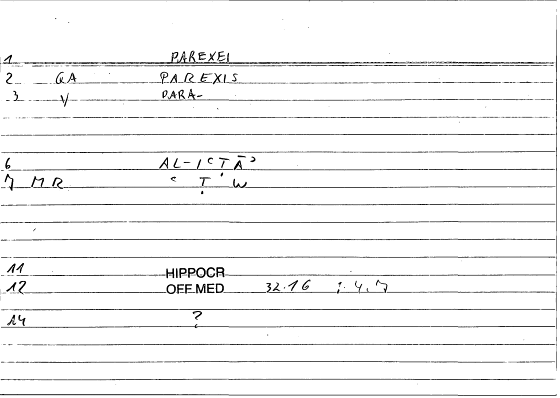 1 PAREXEI
2 GA PAREXIS
3 V PARA-
6 AL-I ʿṬĀʾ
7 MR ʿ Ṭ W
11 HIPPOCR
12 OFF.MED 32.16 ; 4,7
14 ?